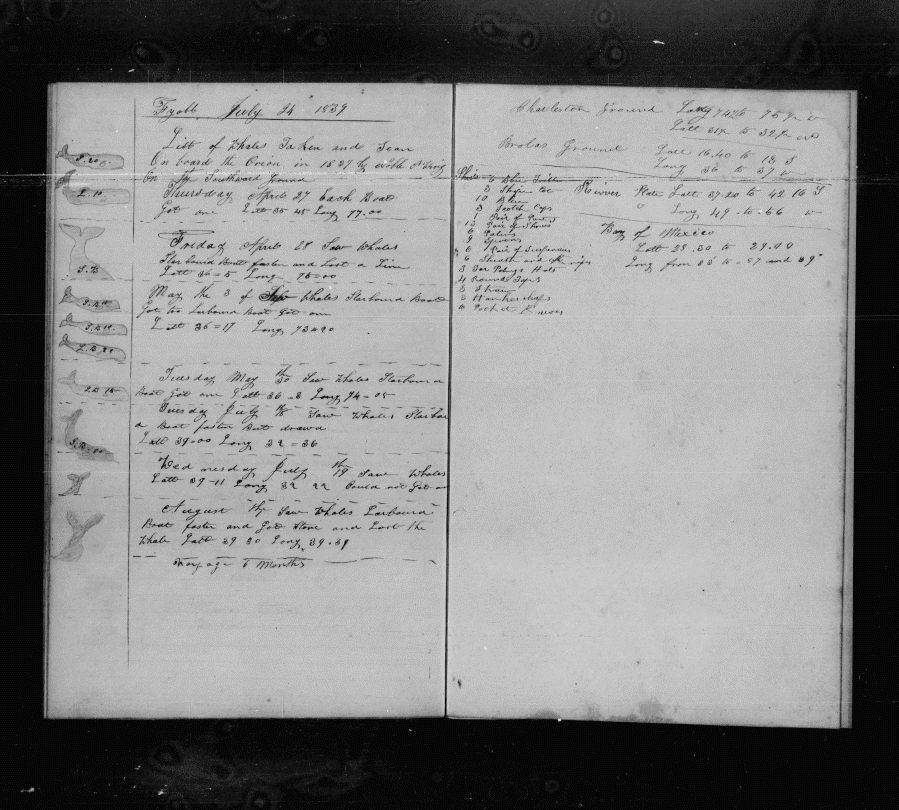 Fyall July 24 1839
List of Whales Taken and Sean
On board the Orion in 18
On the Southward Ground
Thursday April 27 Each Boat
Got one Latt 35 45 Long 77.00
Friday April 28 Saw Whales
Starbourd Boat fasten and Lost a Line
Latt 36=5 Long 76=00
May the 3 of Saw Whales Starbourd Boat
Got too Larbourd Boat Got one
Latt 36=17 Long 73=20
Tuesday May 30 Saw Whales Starbourd
Boat Got one Latt 36 = 3 Long 74 = 05
Tuesday July Saw Whales Starbor
a Boat fasten But drawd
Latt 39=00 Long 32 = 36
Wednesday July 19 Saw Whales
Latt 39-11 Long 32 22 Could not Get on
August Saw Whales Larbourd
Boat fasten and Got Stove and Lost the
Whale Latt 39 30 Long 39.39
6 Months
S. 20
L. 10
S.B
S.B
L.B
S.B
S.B
Charleston Ground Long 74 to 75 w
Latt 31 to 32
Ground Latt 16.40 to 18 S
Long 36 to 37 w
River Plate Latt 37.20 to 42 16 S
Long 49 to 56 w
Bay of Mexico
Latt 28.30 to 29.00
Long from 83 to 87 and 89
Shirts
10 Blue
3 Scotch Caps
Pair of Shoes
9 Spoons
6 Pair of Suspenders
6 Sheath and
3 Hats
3 Hankerchefs
6 Pocket Knives